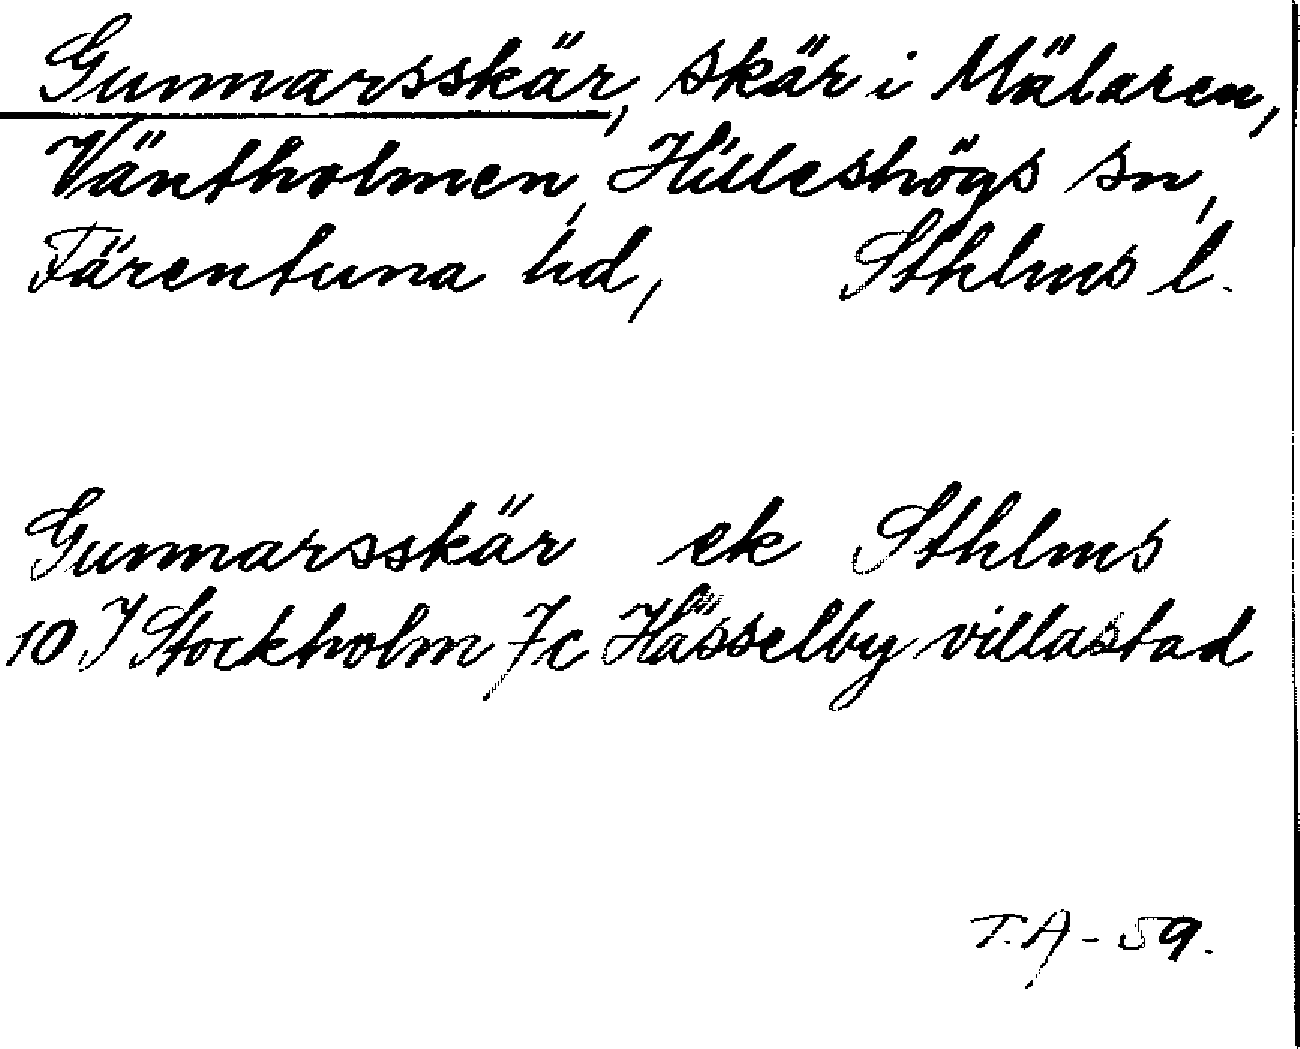 Gunnarsskär, skär i Mälaren,
Väntholmen, Hilleshögs sn,
Färentuna hd, Sthlms l.
Gunnarsskär ek Sthlms
10 I Stockholm 7c Hässelby villastad
T.A - 59.